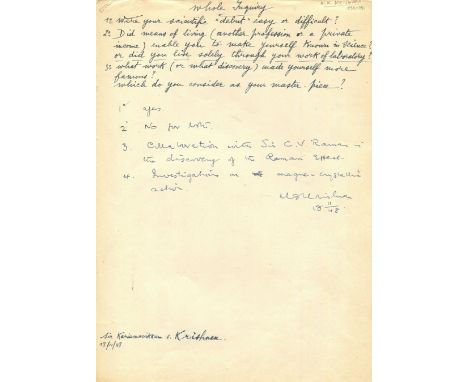 Whole Inquiry
1º Were your scientific "debut" easy or difficult?
2º Did means of living (another profession or a private
means) enable you to make yourself known in science?
or did you live solely through your work of laboratory?
3º what work (or what discovery) made yourself more
famous?
which do you consider as your master-piece?
1º yes.
2 No for
3. Collaboration with Sir C.V. Raman in
the discovery of the Raman Effect
4. Investigations on magne-crystallic
action
KSKrishnan
18/11/48
Sir Kariamanikkam s. Krishnan.